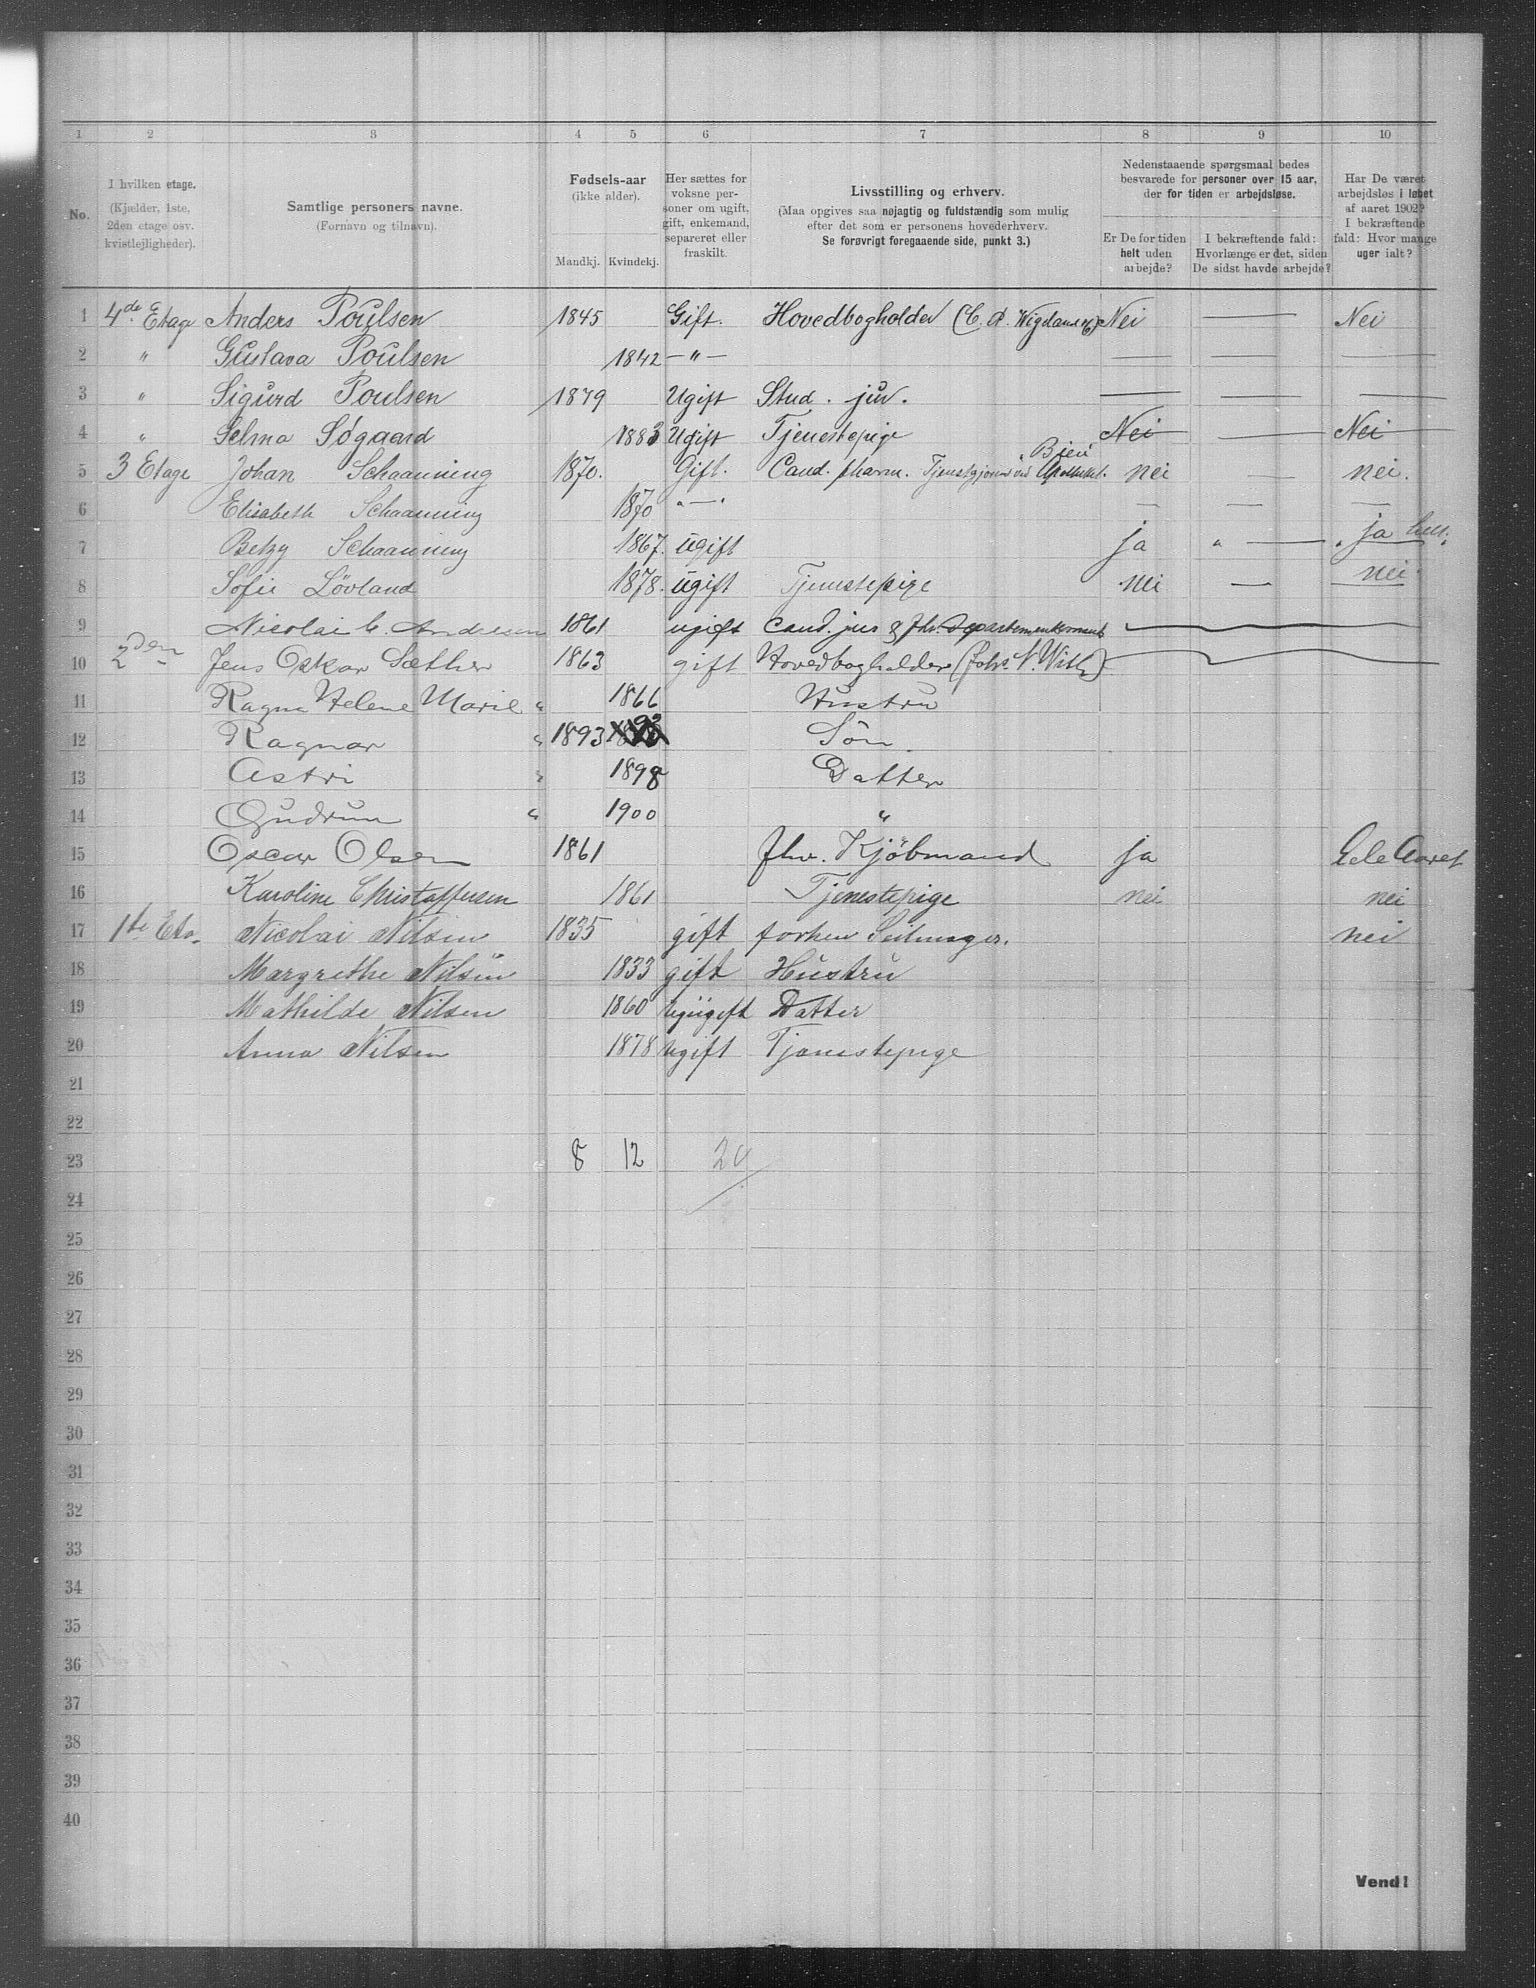 1 2 3 4 5 6 7 8 9 10
No.
I hvilken etage.
(Kjælder, 1ste,
2den etage osv.
kvistlejligheder).
Samtlige personers navne.
(Fornavn og tilnavn).
Fødsels-aar
(ikke alder).
Mandkj. Kvindekj.
Her sættes for
voksne per-
soner om ugift,
gift, enkemand,
separeret eller
fraskilt.
Livsstilling og erhverv.
(Maa opgives saa nøjagtig og fuldstændig som mulig
efter det som er personens hovederhverv.
Se forøvrigt foregaaende side, punkt 3.)
Nedenstaaende spørgsmaal bedes
besvarede for personer over 15 aar,
der for tiden er arbejdsløse.
Er De for tiden
helt uden
arbejde?
I bekræftende fald:
Hvorlænge er det, siden
De sidst havde arbejde?
Har De været
arbejdsløs i løbet
af aaret 1902?
I bekræftende
fald: Hvor mange
uger ialt?
1 4de Etage Anders Poulsen 1845 Gift. Hovedbogholder (C. A. Nei — Nei
2 " Gustava Poulsen 1842 —"— — — —
3 " Sigurd Poulsen 1879 Ugift Stud. jur. — — —
4 " Selma Søgaard 1883 Ugift Tjenestepige Nei — Nei
5 3 Etage Johan Schaanning 1870. Gift. Cand. pharm. Apotheket. nei — nei.
6 Elisabeth Schaanning 1870 "—" — —
7 Betzy Schaanning 1867. ugift ja " — " ja
8 Sofie Lövland 1878. ugift Tjenestepige nei — nei
9 Nicolai C. Andresen 1861 ugift Cand. jur &
10 2den Jens Oskar Sæther 1863 gift Hovedbogholder (Johs N. With)
11 Ragna Helene Marie " 1866 Hustru
12 Ragnar " 1893 Sön
13 Astri " 1898 Datter
14 Gudrun " 1900 "
15 Oscar Olsen 1861 fhv. Kjöbmand ja Hele Aaret
16 Karoline Christoffersen 1861 Tjenestepige nei nei
17 1ste Eta. Nicolai Nilsen 1835 gift forhen Seilmager. nei
18 Margrethe Nilsen 1833 gift Hustru
19 Mathilde Nilsen 1860 Datter
20 Anna Nilsen 1878 ugift Tjenestepige
21
22
23 8 12 20
24
25
26
27
28
29
30
31
32
33
34
35
36
37
38
39
40
Vend!